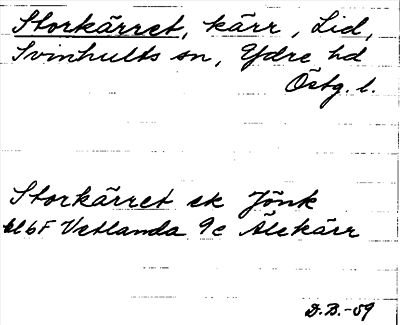 Storkärret, kärr, Lid,
Svinhults sn, Ydre hd
Östg. l.
Storkärret ek Jönk
bl 6F Vetlanda 9c Älekärr
D.B.-59